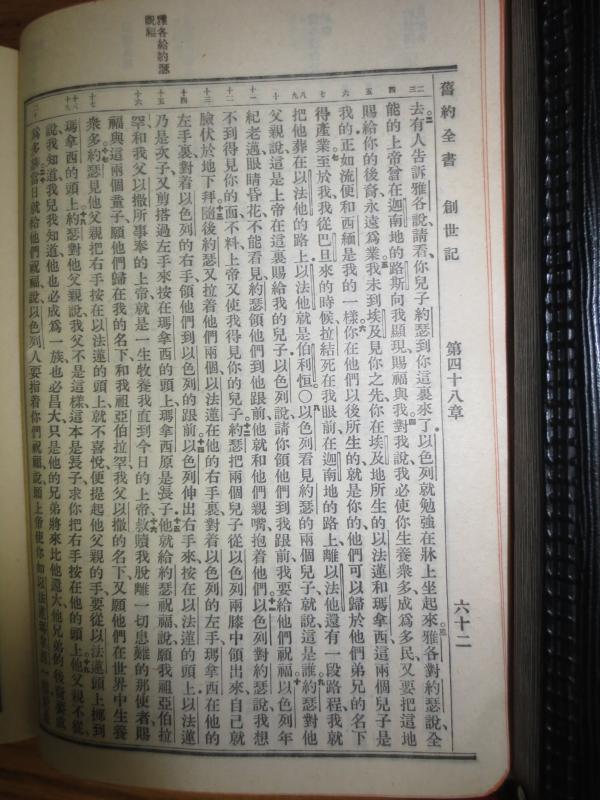 雅各給約瑟
祝福
舊約全書 創世記 第四十八章 六十二
去有人告訴雅各說、請看、你兒子約瑟到你這裏來了、以色列就勉強在牀上坐起來、雅各對約瑟說、全
能的上帝曾在迦南地的路斯向我顯現、賜福與我、對我說、我必使你生養衆多、成爲多民、又要把這地
賜給你的後裔、永遠爲業、我未到埃及見你之先、你在埃及地所生的以法蓮和瑪拿西、這兩個兒子是
我的、正如流便和西緬是我的一樣、你在他們以後所生的、就是你的、他們可以歸於他們弟兄的名下
得產業、至於我、我從巴旦來的時候、拉結死在我眼前、在迦南地的路上、離以法他還有一段路程、我就
把他葬在以法他的路上、以法他就是伯利恒○以色列看見約瑟的兩個兒子、就說、這是誰、約瑟對他
父親說、這是上帝在這裏賜給我的兒子、以色列說、請你領他們到我跟前、我要給他們祝福、以色列年
紀老邁、眼睛昏花、不能看見、約瑟領他們到他跟前、他就和他們親嘴、抱着他們、以色列對約瑟說、我想
不到得見你的面、不料、上帝又使我得見你的兒子、約瑟把兩個兒子從以色列兩膝中領出來、自己就
臉伏於地下拜、隨後約瑟又拉着他們兩個、以法蓮在他的右手裏、對着以色列的左手、瑪拿西在他的
左手裏、對着以色列的右手、領他們到以色列的跟前、以色列伸出右手來、按在以法蓮的頭上、以法蓮
乃是次子、又剪搭過左手來、按在瑪拿西的頭上、瑪拿西原是長子、他就給約瑟祝福、說、願我祖亞伯拉
罕、和我父以撒所事奉的上帝、就是一生牧養我直到今日的上帝、救贖我脫離一切患難的那使者、賜
福與這兩個童子、願他們歸在我的名下、和我祖亞伯拉罕、我父以撒的名下、又願他們在世界中生養
衆多、約瑟見他父親把右手按在以法蓮的頭上、就不喜悅、便提起他父親的手、要從以法蓮頭上挪到
瑪拿西的頭上、約瑟對他父親說、我父不是這樣、這本是長子、求你把右手按在他的頭上、他父親不從、
說、我知道、我兒、我知道、他也必成爲一族、也必昌大、只是他的兄弟將來比他還大、他兄弟的後裔要成
爲多族、當日就給他們祝福、說、以色列人要指着你們祝福、說、願上帝使你如以法蓮瑪拿西一樣